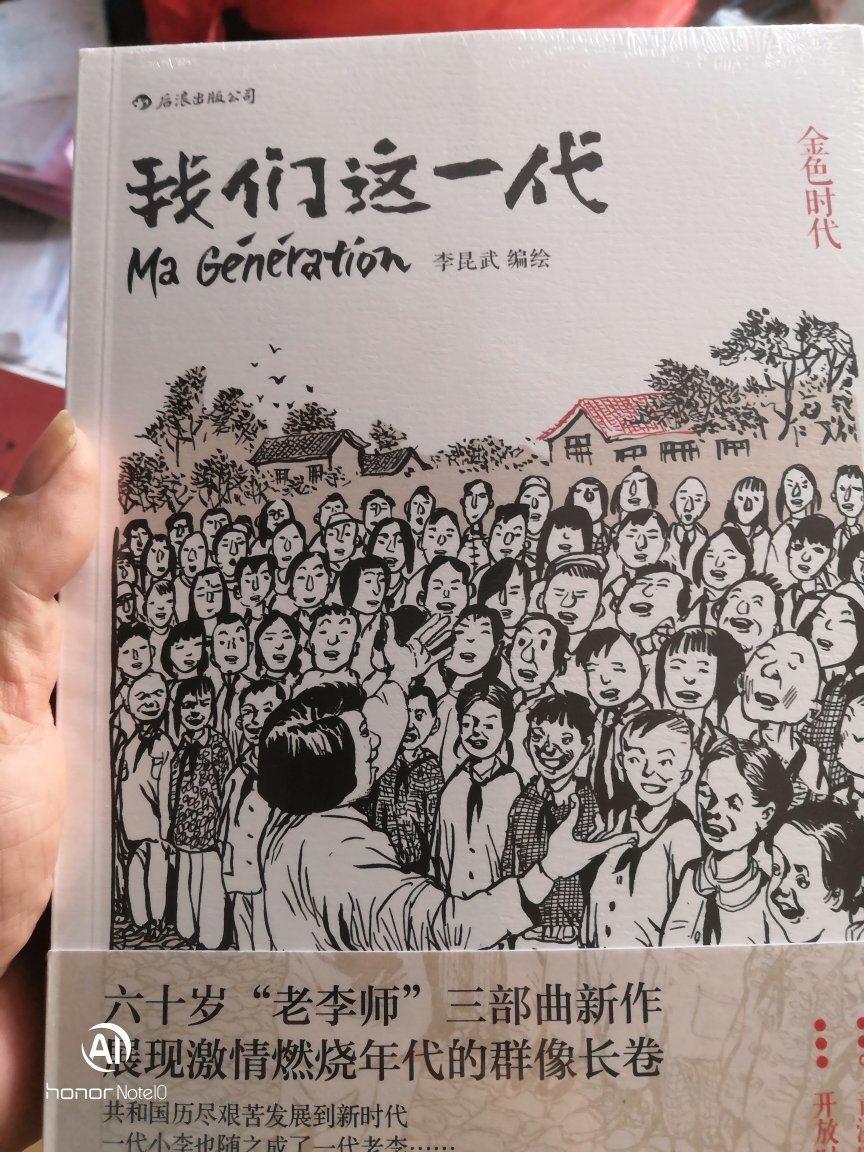 后浪出版公司
我们这一代
Ma Génération
李昆武 编绘
金色时代
六十岁“老李师”三部曲新作
展现激情燃烧年代的群像长卷
共和国历尽艰苦发展到新时代
一代小李也随之成了一代老李……
开放
AI
honor Note10